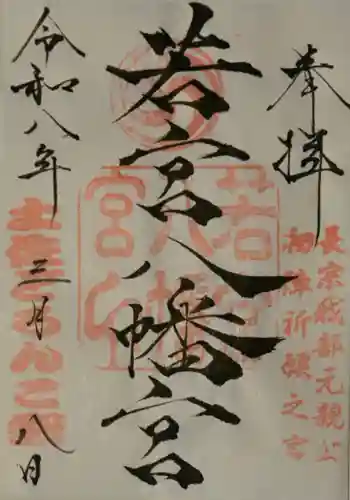 奉拝
長宗我部元親公
初陣祈願之宮
若宮八幡宮
令和八年
三月八日